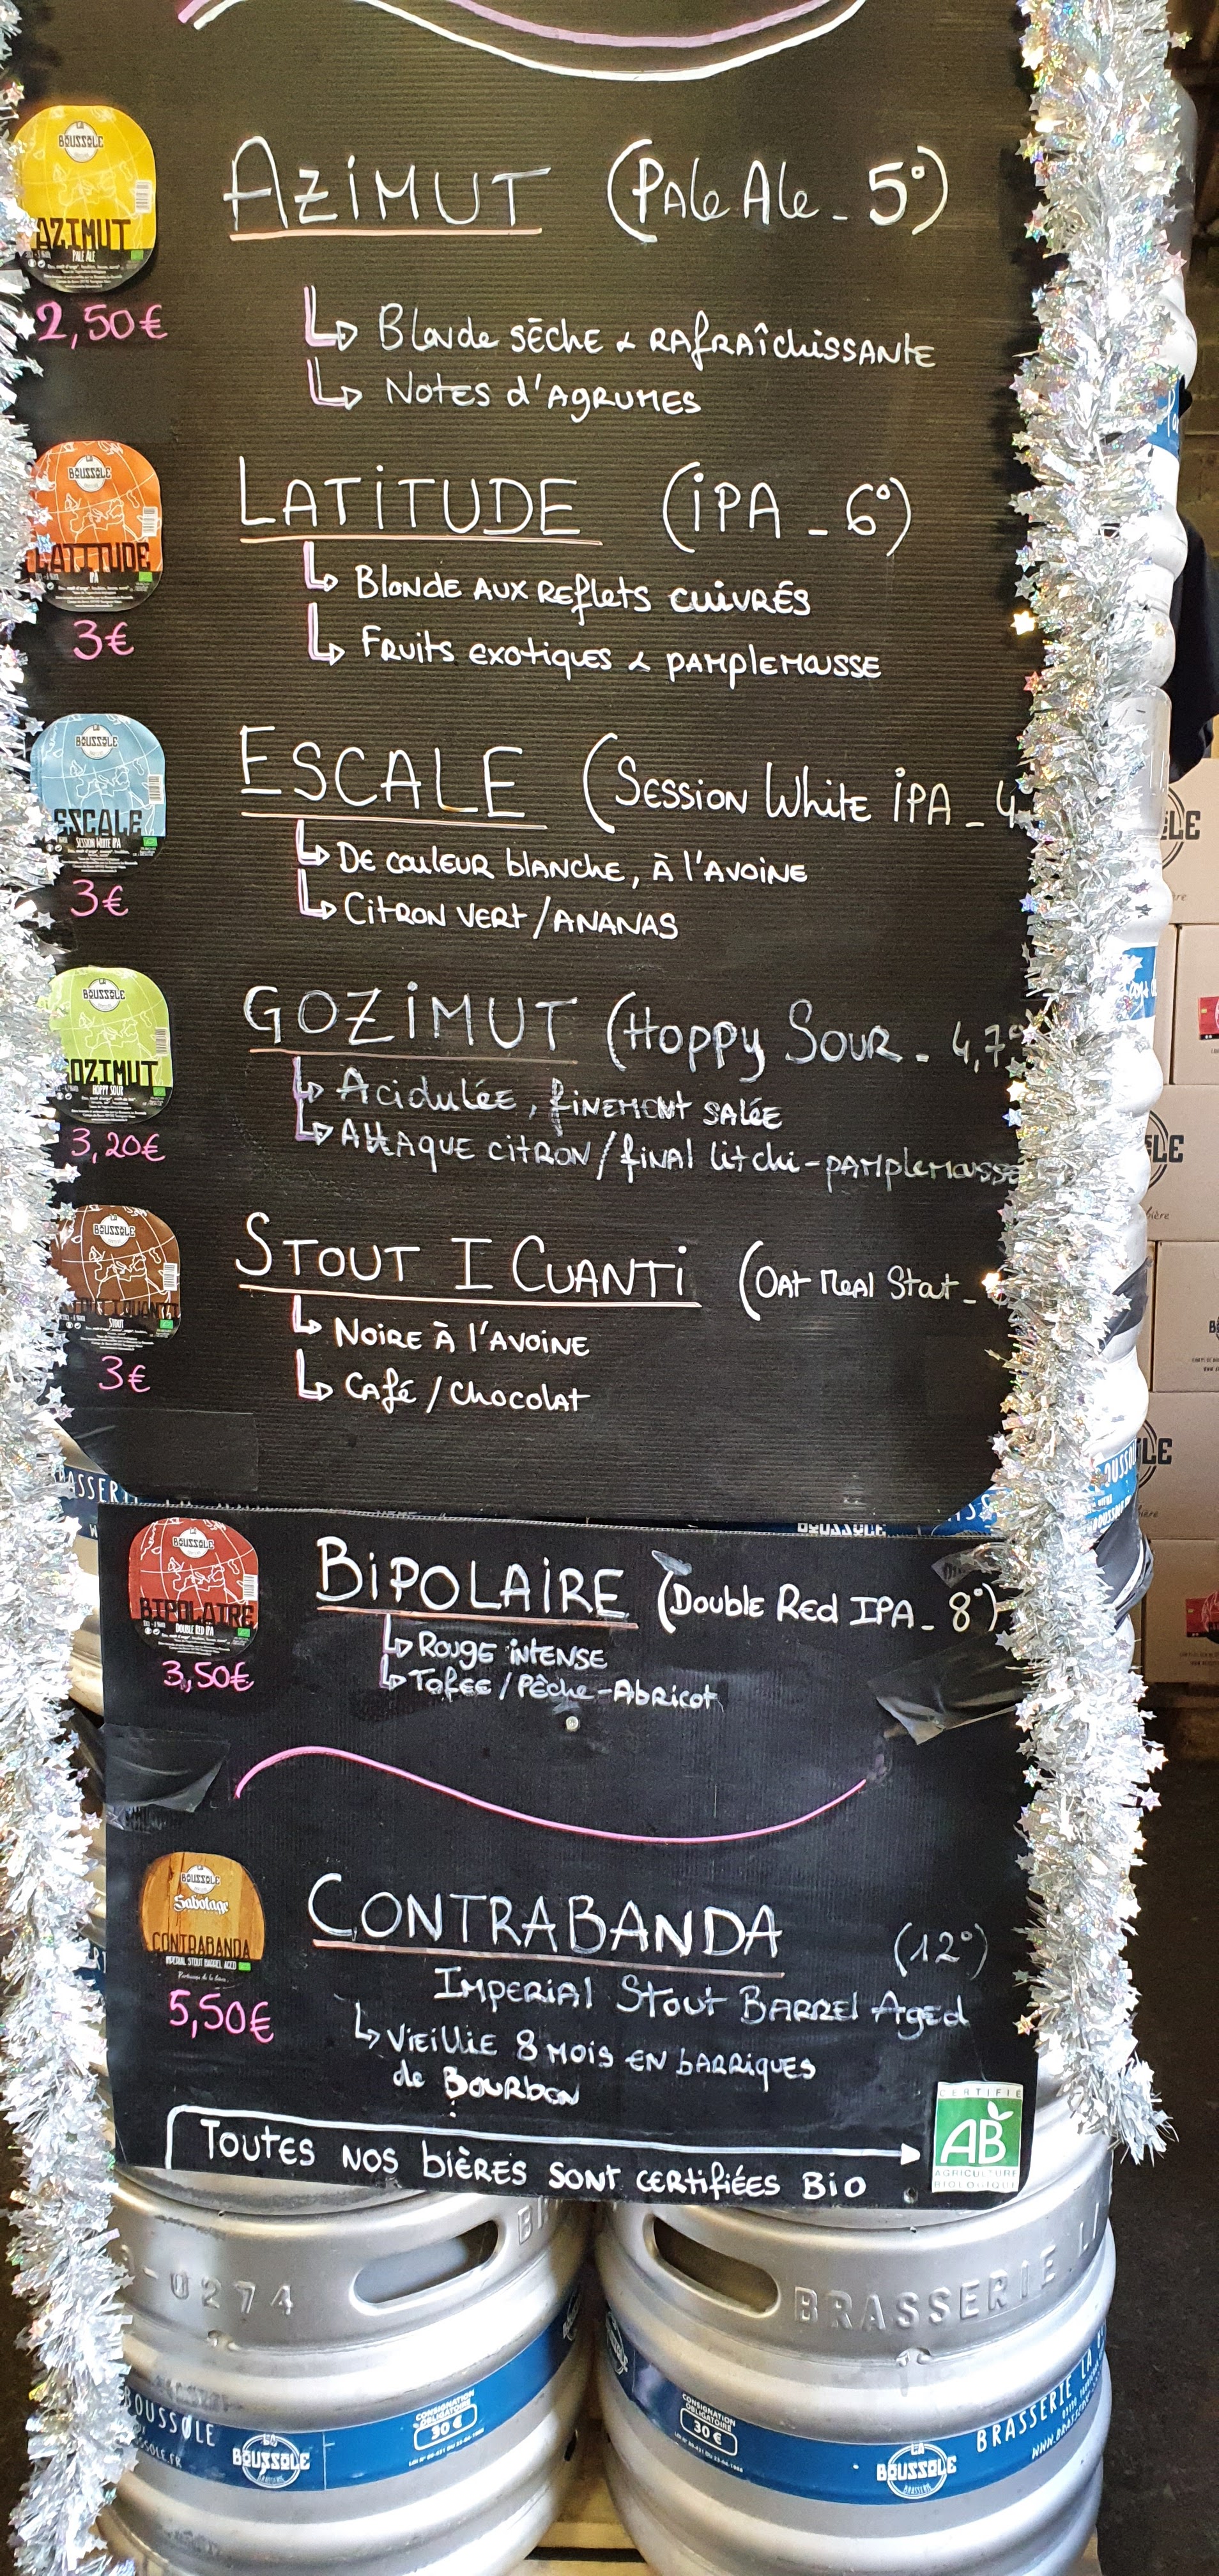 LA BOUSSOLE
AZIMUT
PALE ALE
2,50€
AZiMUT (PAle Ale - 5°)
Blonde SÈCHE & RAfRAÎChiSSANtE
NOTES d'AGRUMES
LA BOUSSOLE
LATITUDE
IPA
3€
LATiTUDE (iPA - 6°)
BLONDE AUX REflEtS CUiVRÉS
FRUitS EXOtiqUES & PAMPLEMOUSSE
LA BOUSSOLE
ESCALE
SESSION WHITE IPA
3€
ESCALE (SESSiON WhitE iPA - 4
DE COULEUR blANCHE, À l'AVOiNE
CitRON VERt / ANANAS
LA BOUSSOLE
GOZIMUT
HOPPY SOUR
3,20€
GOZiMUT (HOPPY SOUR - 4,7°
Acidulée, fiNEMENt SALÉE
AttAQUE CitRON / fiNAl litchi - PAMPlEMOUSSE
LA BOUSSOLE
STOUT
3€
STOUT I CUANTi (OAt MEAl StOut -
NOiRE À l'AVOiNE
CAfé / ChOcOlAt
LA BOUSSOLE
BIPOLAIRE
DOUBLE RED IPA
3,50€
BiPOLAiRE (DOUblE REd IPA - 8°)
ROUGE iNtENSE
TOfEE / PÊChE - AbRiCOt
LA BOUSSOLE
Sabotage
CONTRABANDA
IMPERIAL STOUT BARREL AGED
5,50€
CONTRABANDA (12°)
IMPERiAl StOUt BARREl AGEd
ViEilliE 8 MOiS EN bARRiqUES
de BOURbON
TOUTES NOS biÈRES SONT CERtifiÉES BiO
CERTIFIÉ
AB
AGRICULTURE
BIOLOGIQUE
-0274
BRASSERIE L
BOUSSOLE
LA BOUSSOLE
CONSIGNATION
OBLIGATOIRE
30 €
CONSIGNATION
OBLIGATOIRE
30 €
LA BOUSSOLE
BRASSERIE LA